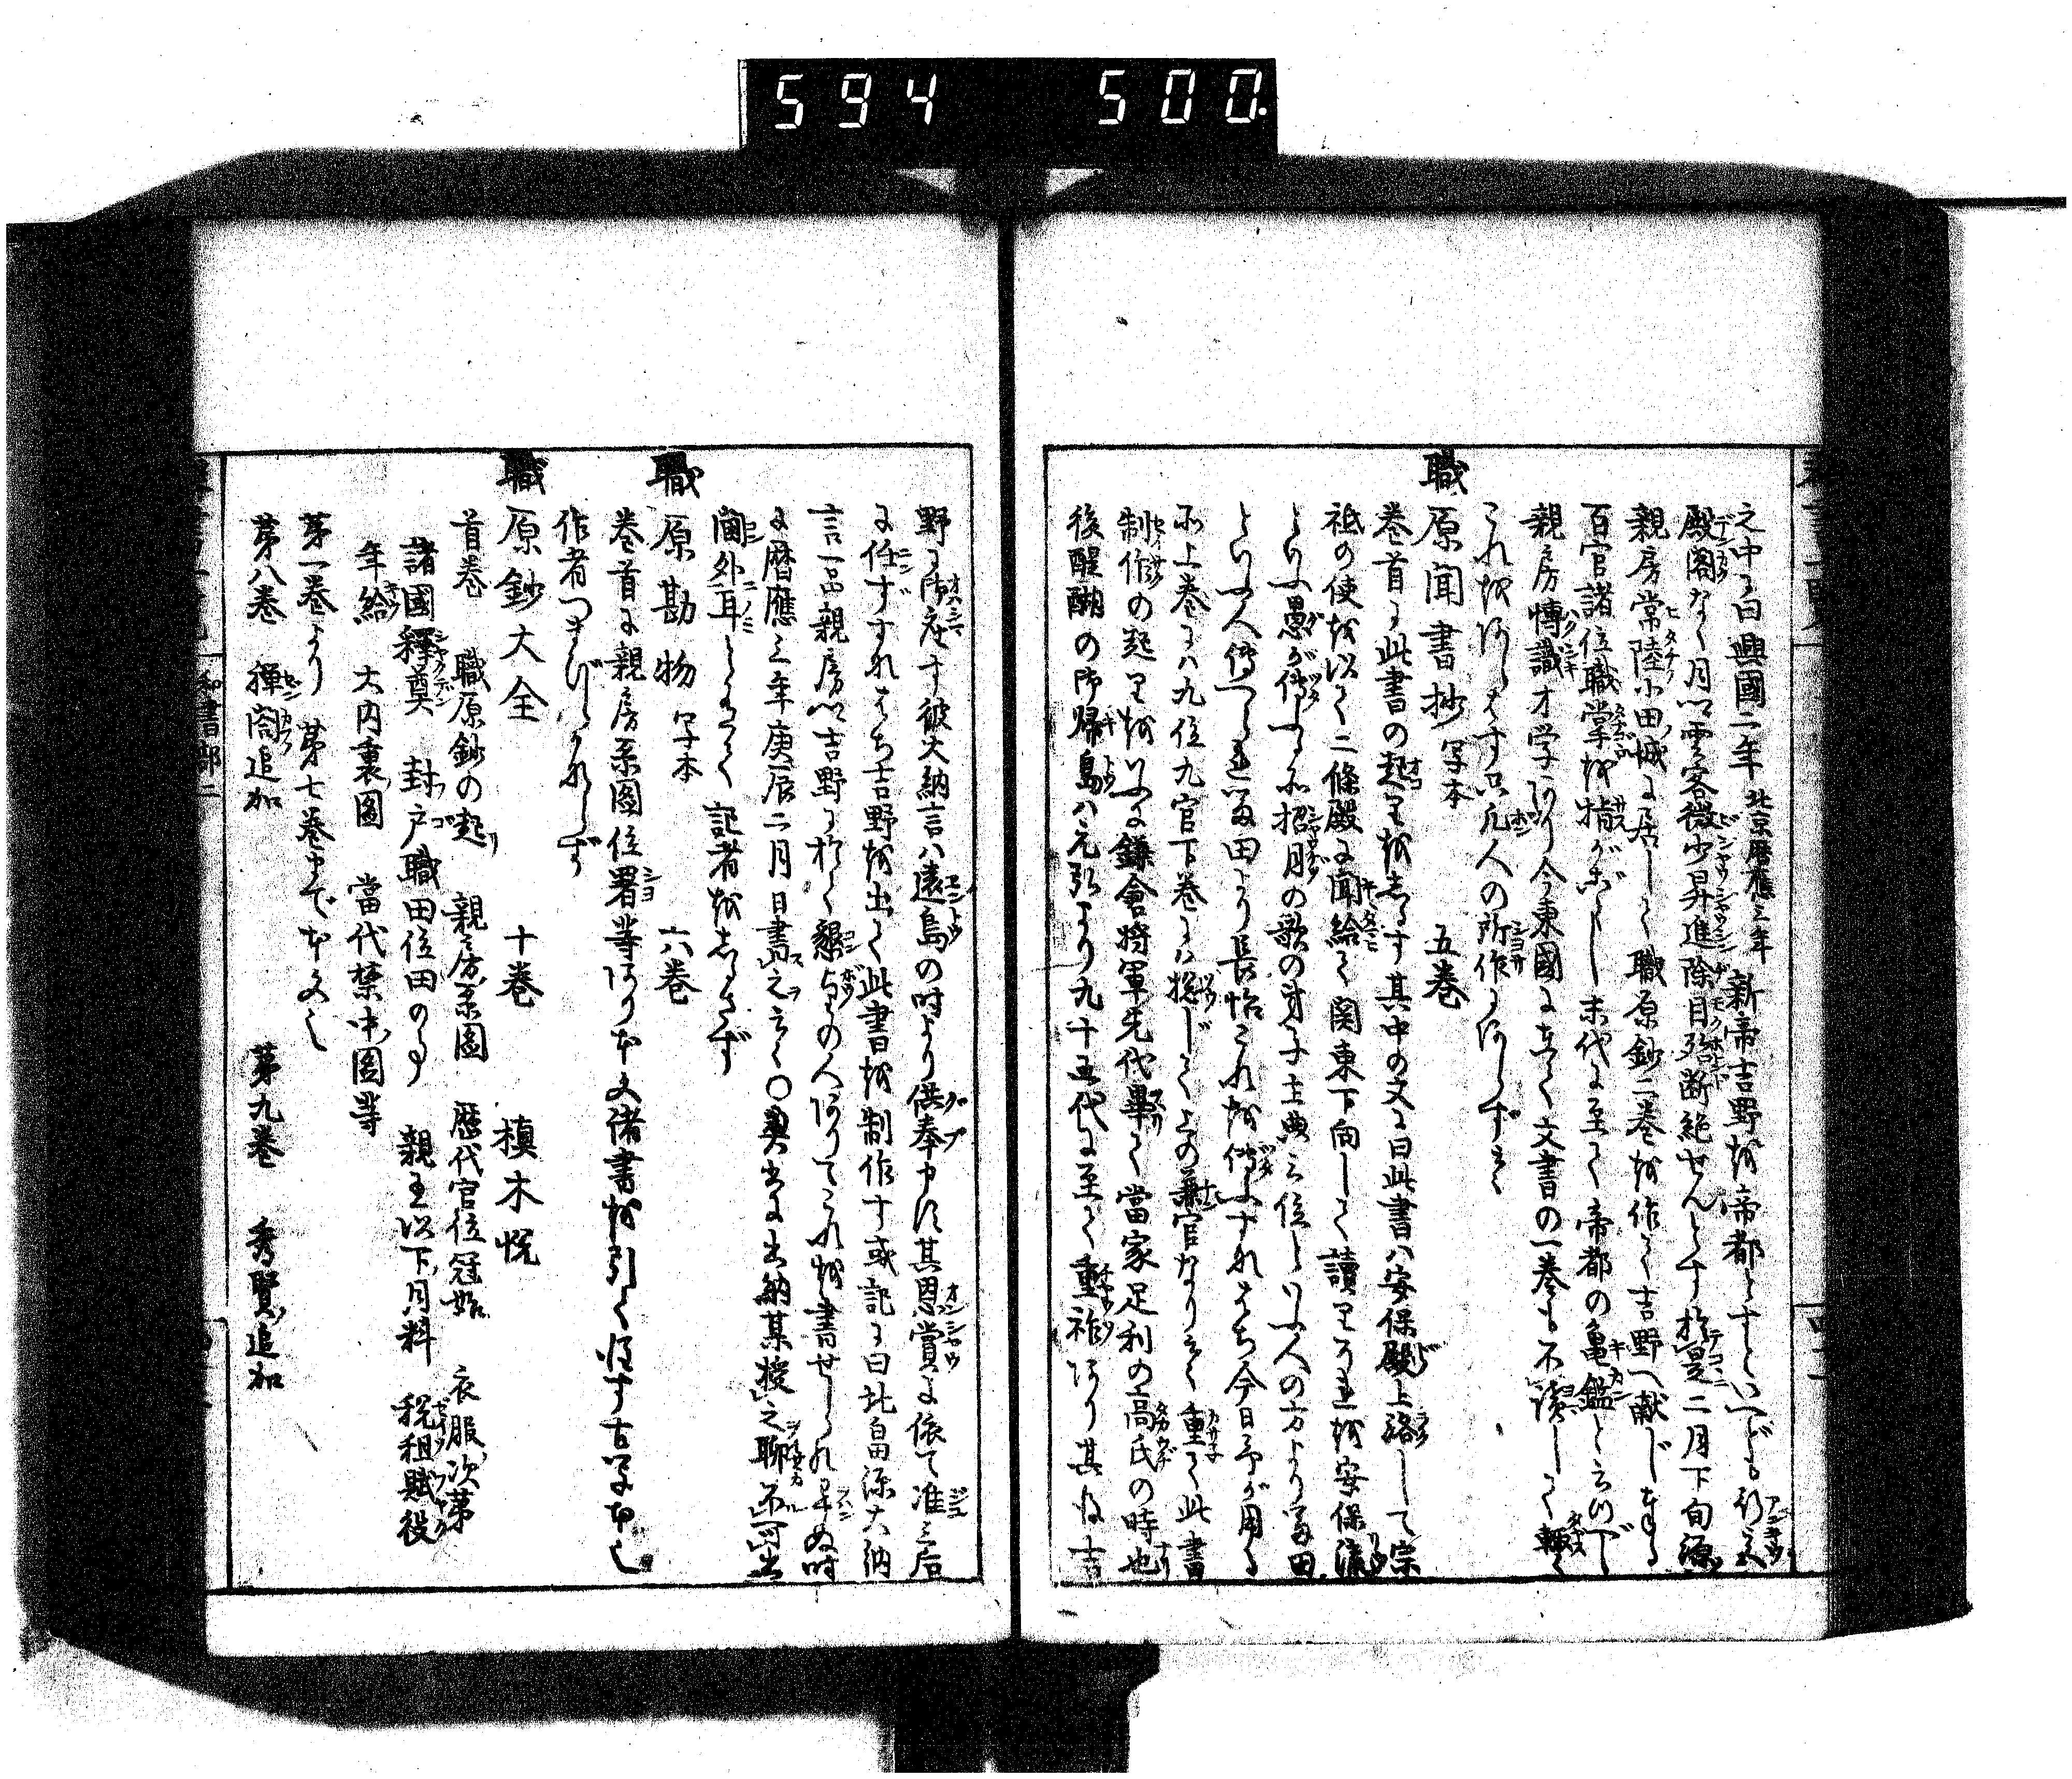 594 500.
之中ニ曰興國二年 北京暦應三年 新帝吉野を帝都とすといへども行宮
殿閣なく月卿雲客微少昇進除目殆断絶せんとす於是二月下旬源
親房常陸小田城に居して職原鈔二巻を作て吉野へ献じ奉る
百官諸位職掌を指がごとし末代に至て帝都の亀鑑と云つべし
親房博識才学あり今東國に在て文書の一巻も不携して輙く
これをあらはす只凡人の所作にあらずと云々
職原聞書抄 写本 五巻
巻首に此書の起りを志るす其中の文に曰此書ハ安保殿上洛して宗
祇の使を以て二條殿に聞給て関東下向して讀りこれを安保流
といふ愚が傳ふる所招月の歌の弟子士典三位といふ人の方より富田
といふ人傳へこれ富田より長怡これを傳ふすなはち今日予が用る
所上巻にハ九位九官下巻にハ惣じて上の兼官なり云々重て此書
制作の起りをいふに鎌倉将軍先代畢て當家足利の高氏の時也
後醍醐の御帰島ハ元弘より九十五代に至て重祚あり其後吉
野に御座す彼大納言ハ遠島の時より供奉申は其恩賞に依て准三后
に任ずすなはち吉野を出て此書を制作す或記に曰北畠源大納
言一品親房以吉野に於て懇望の人ありてこれを書せしられ畢ぬ時
に暦應三年庚辰二月日書之云々○奥書に出納某授之聊不可出
閫外耳とありて 記者を志るさず
職原勘物 写本 六巻
巻首に親房系圖位署等あり本文諸書を引て注す古写本也
作者つまびらかならず
職原鈔大全 十巻 槙木悦
首巻 職原鈔の起り 親房系圖 歴代官位冠始 衣服次第
諸國釋奠 封戸職田位田の事 親王以下月料 税租賦役
年給 大内裏圖 當代禁中圖等
第一巻より 第七巻まで本文也
第八巻 禅閤追加 第九巻 秀賢追加